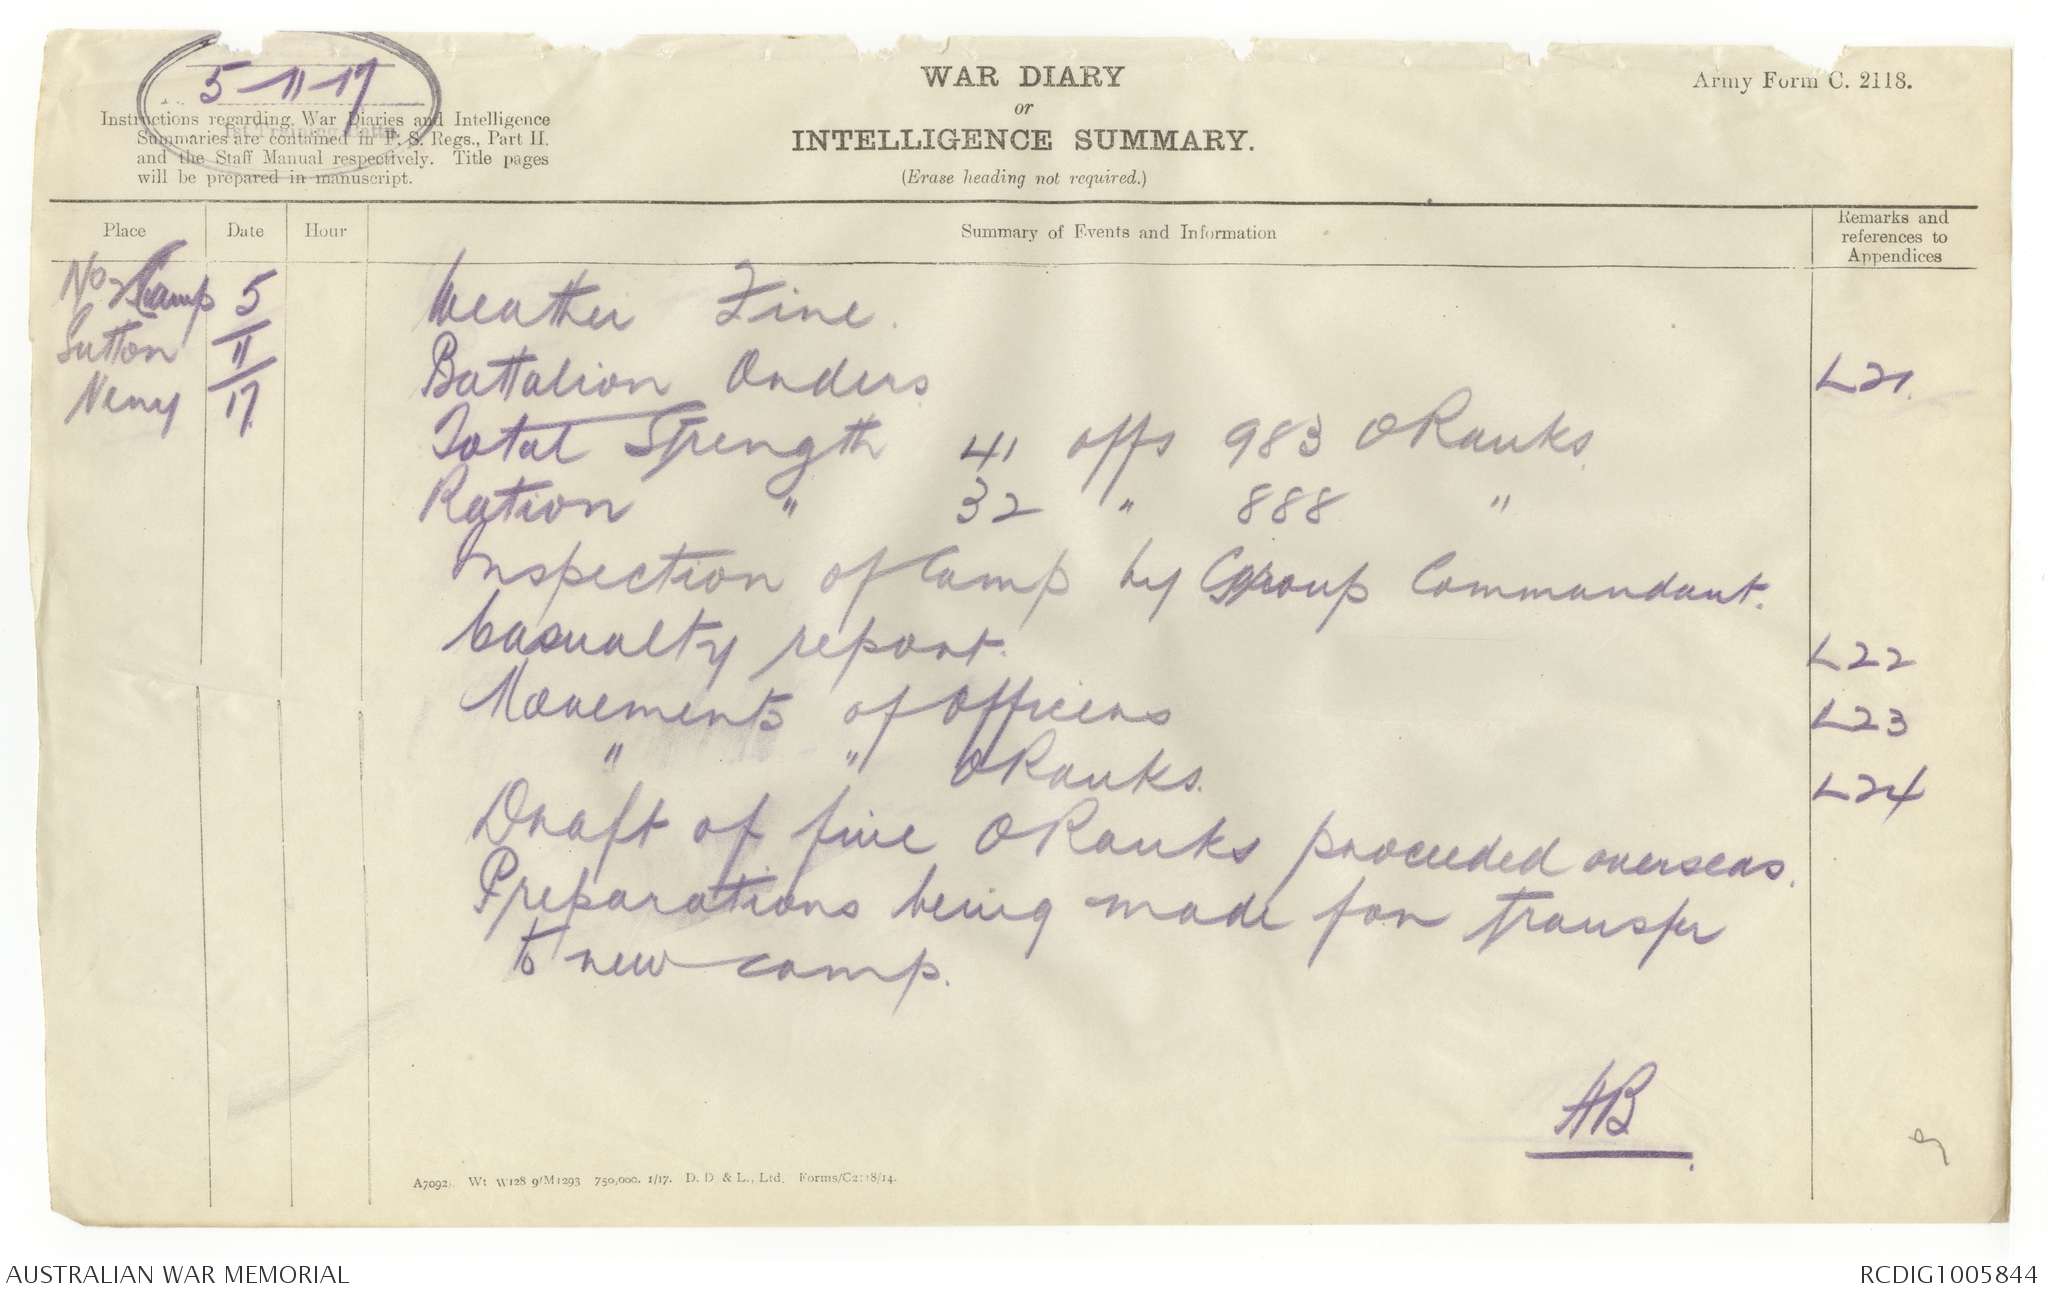 5-11-17
1st Training Battn
WAR DIARY
or
INTELLIGENCE SUMMARY.
(Erase heading not required.)
Army Form C. 2118.
Instructions regarding War Diaries and Intelligence
Summaries are contained in F. S. Regs., Part II.
and the Staff Manual respectively. Title pages
will be prepared in manuscript.
Place
Date
Hour
Summary of Events and Information
Remarks and
references to
Appendices
No 2 Camp
Sutton
Veny
5
11
17
Weather Fine.
Battalion Orders L21.
Total Strength 41 offs 983 ORanks.
Ration " 32 " 888 "
Inspection of Camp by Group Commandant.
Casualty report. L22
Movements of Officers L23
" " ORanks. L24
Draft of five ORanks proceeded overseas.
Preparations being made for transfer
to new camp.
AB
A7092). Wt W128 9/M1293 750,000. 1/17. D. D & L., Ltd. Forms/C2118/14.
AUSTRALIAN WAR MEMORIAL
RCDIG1005844